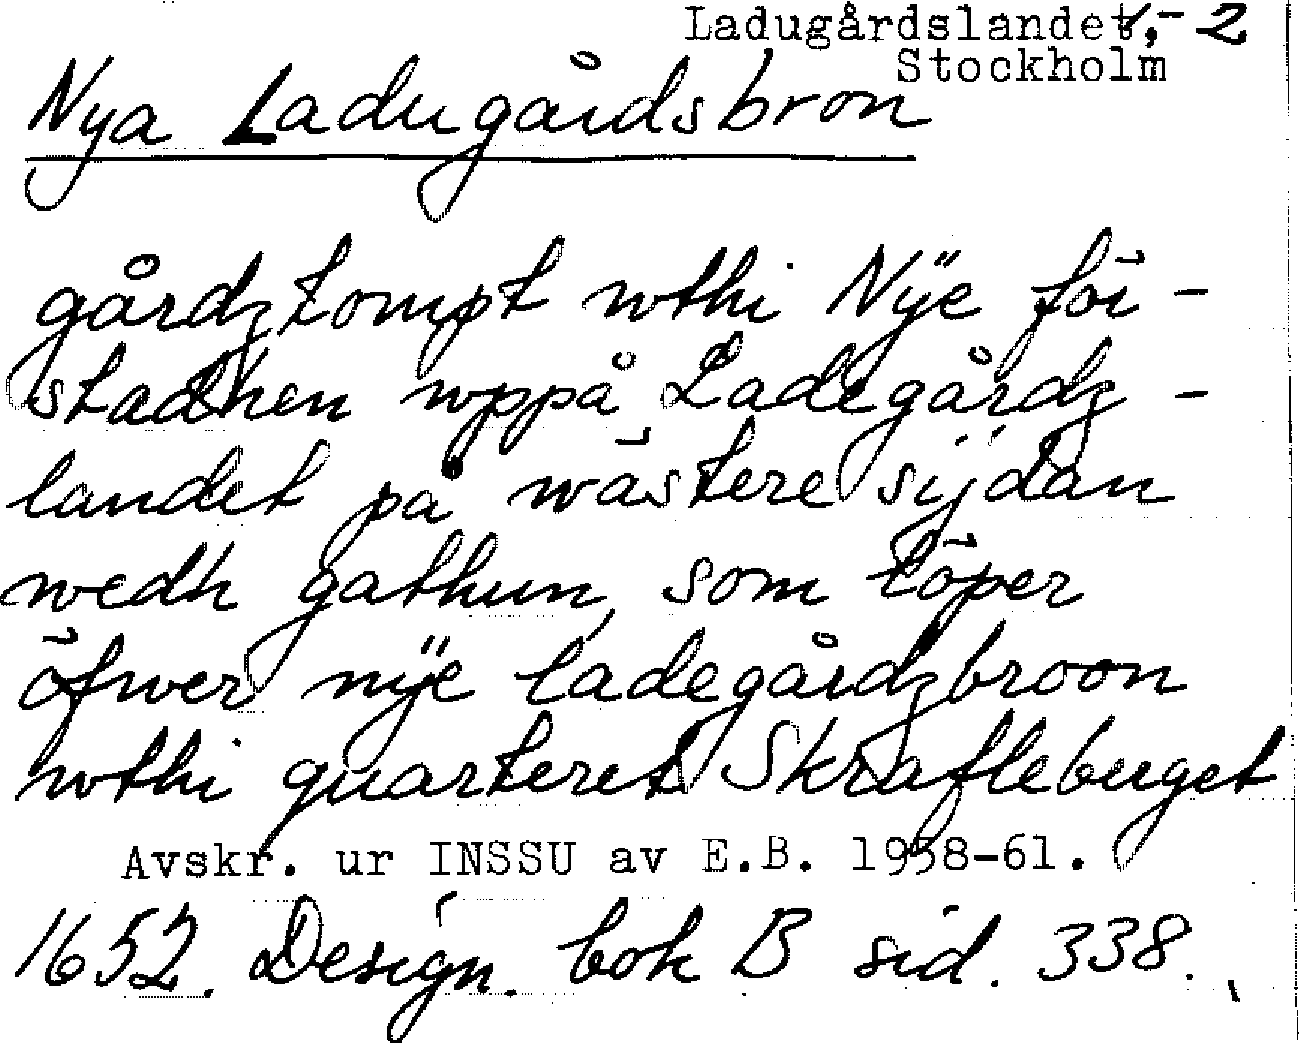 Ladugårdslandet, - 2
Stockholm
Nya Ladugårdsbron
gårdztompt wthi Nÿe för-
stadhen wppå Ladegårdz-
landet på wästere sijdan
wedh gathun, som löper
öfwer nÿe ladegårdzbroon
wthi quarteret Skrafleberget
Avskr. ur INSSU av E.B. 1958-61.
1652. Design. bok B sid. 338.